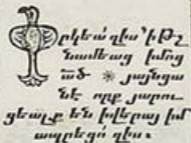 Փրկեա՛ զիս ՚ի թշ
նամեաց իմոց
ած * յայնցա
նէ ոյք յարու
ցեալք են ՚ի վերայ իմ
ապրեցո՛ զիս։